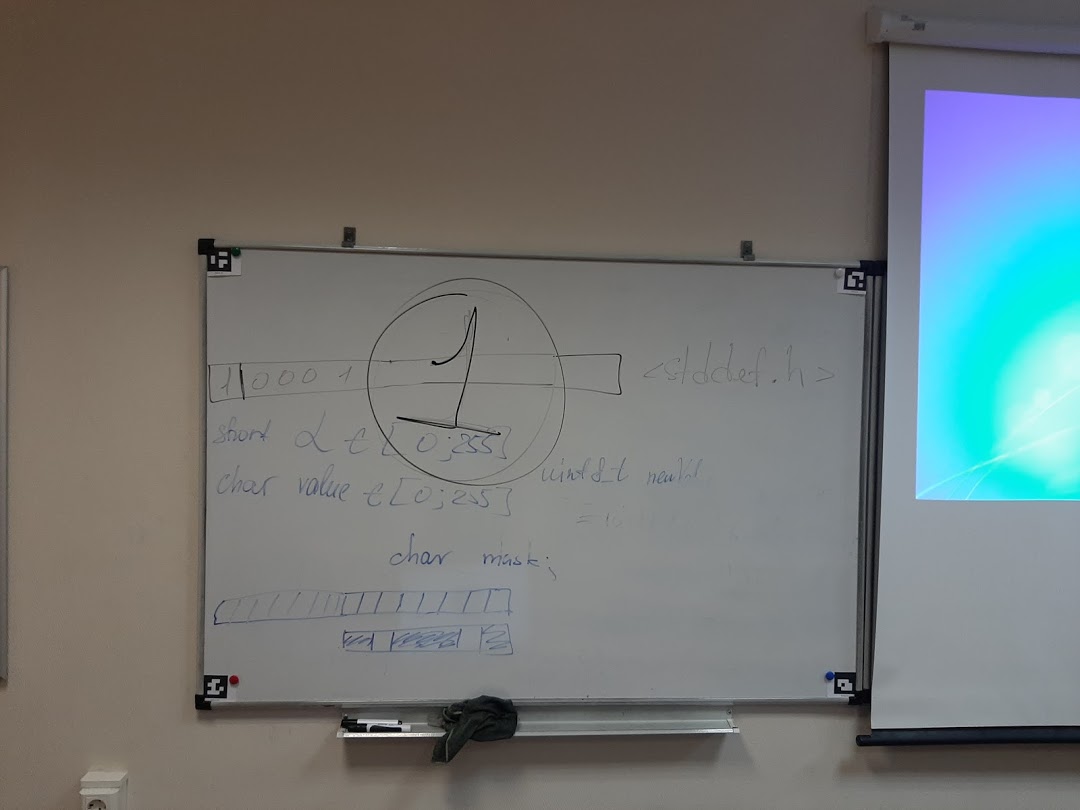 1
1 0 0 0 1
<stddef.h>
short α ∈ [0;255]
char value ∈ [0;255]
uint8_t newVal
char mask;